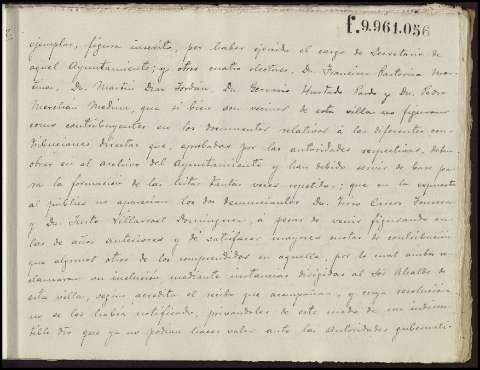 f.9.961.056
ejemplar, figura inscrito, por haber ejercido el cargo de Secretario de
aquel Ayuntamiento; y otros cuatro electores, Dn. Francisco Pastorina Mar-
Dn. Martin Diaz Jordan, Dn. Gervasio Hurtado Pardo y Dn. Pedro
Merchan Medina, que si bien son vecinos de esta villa no figuran
como contribuyentes en los documentos relativos á las diferentes con-
tribuciones directas que, aprobadas por las autoridades respectivas, deben
obrar en el archivo del Ayuntamiento y han debido servir de base pa-
ra la formacion de las listas tantas veces repetidas; que en la expuesta
al público no aparecian los dos denunciantes Dn. Pedro
y Dn. Justo Villarroel Dominguez, á pesar de venir figurando en
las de años anteriores y de satisfacer mayores cuotas de contribución
que algunos otros de los comprendidos en aquella, por lo cual ambos re-
clamaron su inclusión mediante instancias dirigidas al Sor Alcalde de
esta villa, segun acredita el recibo que acompañan, y cuya resolución
no se les habia notificado, privandoles de este modo de un indiscu-
tible dro que ya no podian hacer valer ante las Autoridades gubernati-